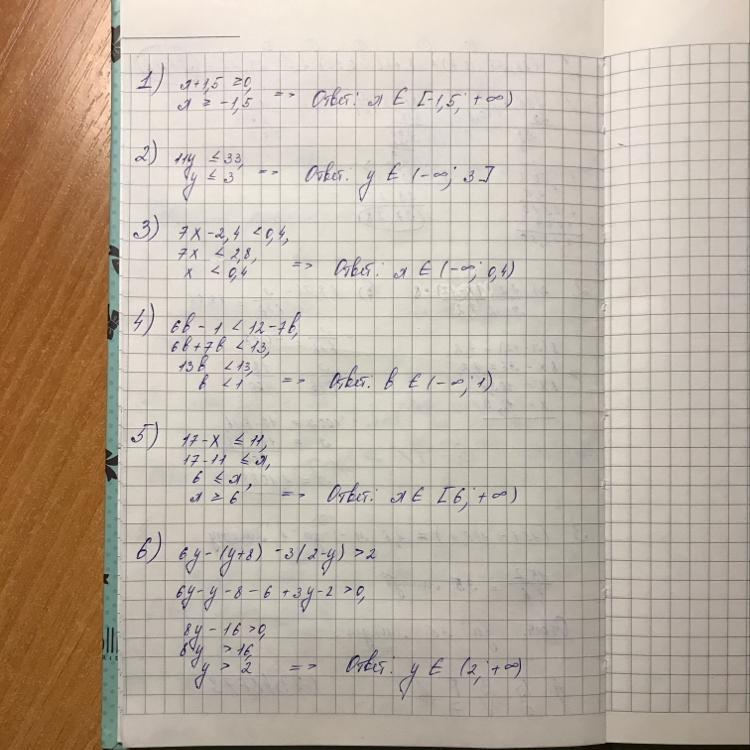 1) x+1,5 ≥0,
x ≥ -1,5 => Ответ: x ∈ [-1,5; +∞)
2) 11y ≤ 33,
y ≤ 3 => Ответ: y ∈ (-∞; 3]
3) 7x-2,4 <0,4,
7x <2,8,
x <0,4 => Ответ: x ∈ (-∞; 0,4)
4) 6в - 1 < 12-7в,
6в+7в <13,
13в <13,
в <1 => Ответ: в ∈ (-∞; 1)
5) 17-x ≤ 11,
17-11 ≤ x,
6 ≤ x,
x ≥ 6 => Ответ: x ∈ [6; +∞)
6) 6y-(y+8) -3(2-y) >2
6y-y-8-6+3y-2 >0,
8y-16 >0,
8y >16,
y > 2 => Ответ: y ∈ (2; +∞)